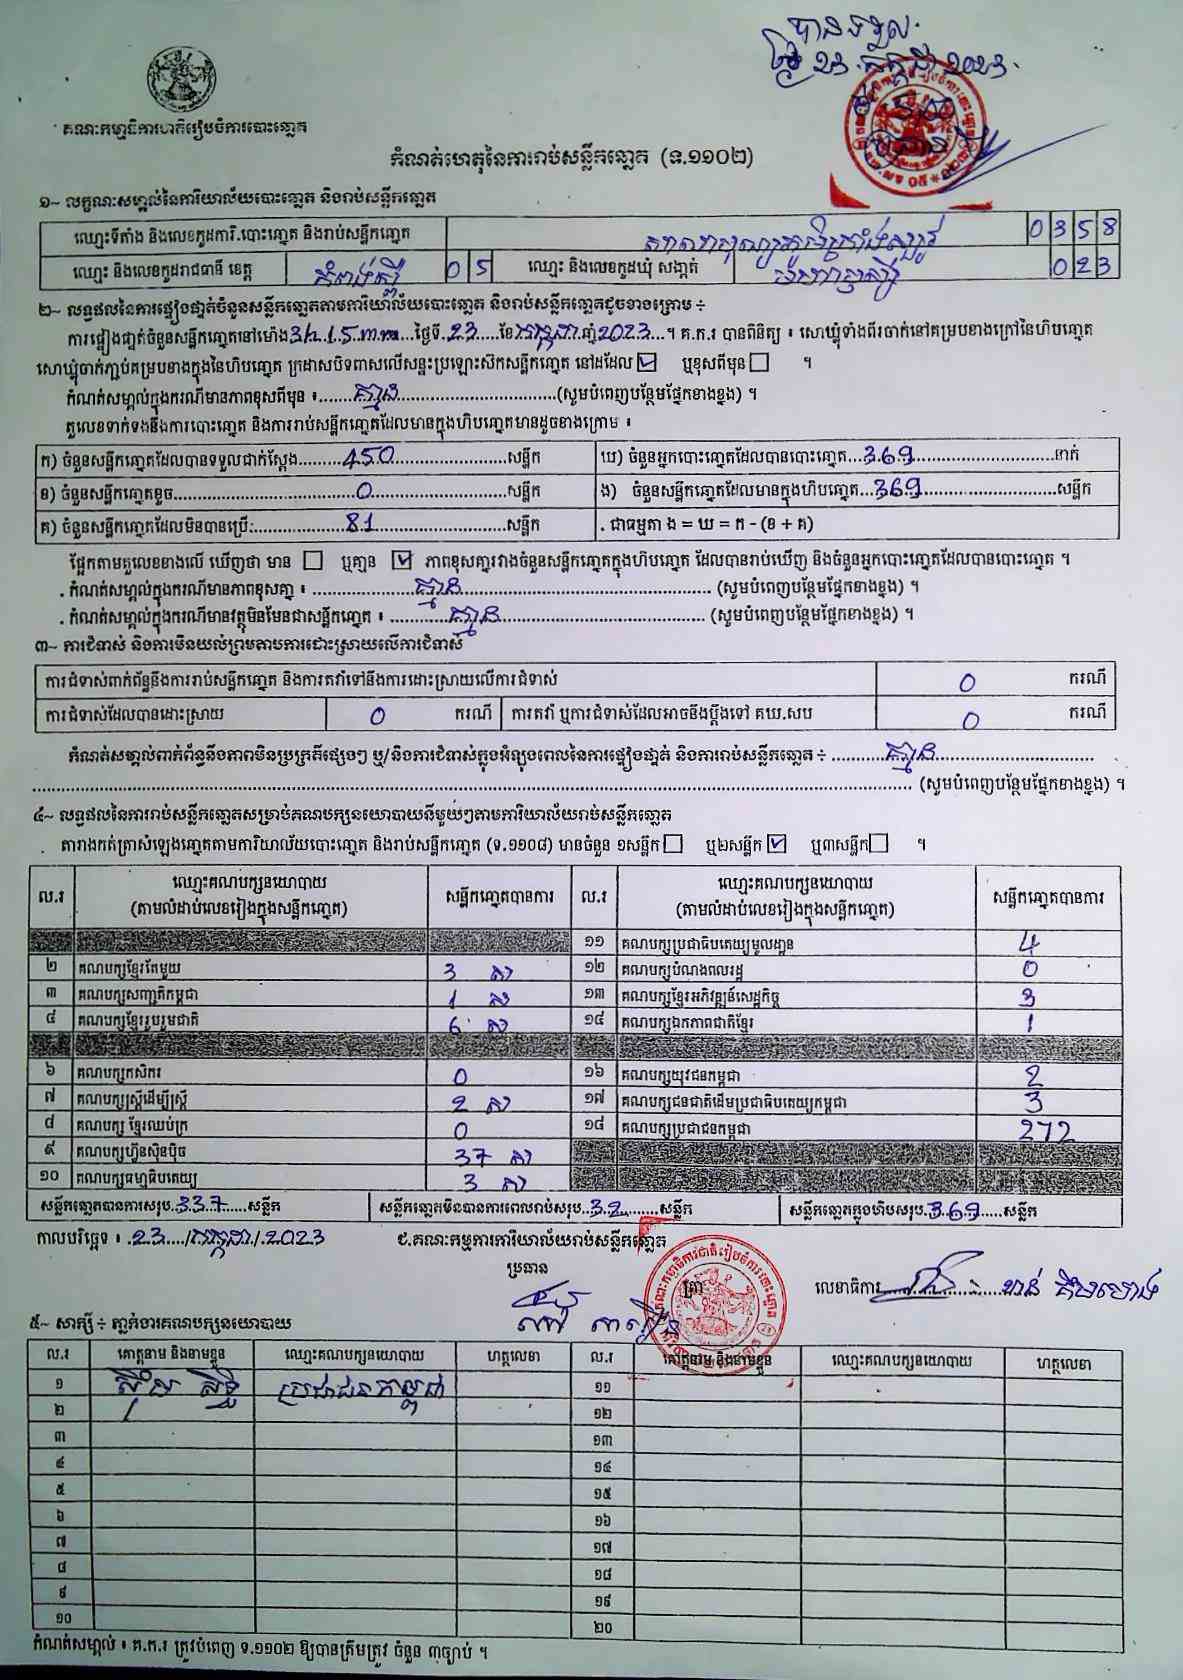 បានទទួល
ថ្ងៃ 23 កក្កដា 2023
គណៈកម្មាធិការជាតិរៀបចំការបោះឆ្នោត
កំណត់ហេតុនៃការរាប់សន្លឹកឆ្នោត (ទ.១១០២)
១~ លក្ខណៈសម្គាល់នៃការិយាល័យបោះឆ្នោត និងរាប់សន្លឹកឆ្នោត
ឈ្មោះទីតាំង និងលេខកូដការិ.បោះឆ្នោត និងរាប់សន្លឹកឆ្នោត 0 3 5 8
ឈ្មោះ និងលេខកូដរាជធានី ខេត្ត កំពង់ស្ពឺ 0 5 ឈ្មោះ និងលេខកូដឃុំ សង្កាត់ 0 2 3
២~ លទ្ធផលនៃការផ្ទៀងផ្ទាត់ចំនួនសន្លឹកឆ្នោតតាមការិយាល័យបោះឆ្នោត និងរាប់សន្លឹកឆ្នោតដូចខាងក្រោម ÷
ការផ្ទៀងផ្ទាត់ចំនួនសន្លឹកឆ្នោតនៅម៉ោង 3h 15mn ថ្ងៃទី 23 ខែ កក្កដា ឆ្នាំ 2023 ។ គ.ក.រ បានពិនិត្យ ៖ សោឃ្លុំទាំងពីរចាក់នៅគម្របខាងក្រៅនៃហិបឆ្នោត
សោឃ្លុំចាក់ភ្ជាប់គម្របខាងក្នុងនៃហិបឆ្នោត ក្រដាសបិទពាសលើសន្ទះប្រឡោះសិកសន្លឹកឆ្នោត នៅដដែល ☑ ឬខុសពីមុន ☐ ។
កំណត់សម្គាល់ក្នុងករណីមានភាពខុសពីមុន ៖ គ្មាន (សូមបំពេញបន្ថែមផ្នែកខាងខ្នង) ។
តួលេខទាក់ទងនឹងការបោះឆ្នោត និងការរាប់សន្លឹកឆ្នោតដែលមានក្នុងហិបឆ្នោតមានដូចខាងក្រោម ៖
ក) ចំនួនសន្លឹកឆ្នោតដែលបានទទួលជាក់ស្តែង 450 សន្លឹក ឃ) ចំនួនអ្នកបោះឆ្នោតដែលបានបោះឆ្នោត 369 នាក់
ខ) ចំនួនសន្លឹកឆ្នោតខូច 0 សន្លឹក ង) ចំនួនសន្លឹកឆ្នោតដែលមានក្នុងហិបឆ្នោត 369 សន្លឹក
គ) ចំនួនសន្លឹកឆ្នោតដែលមិនបានប្រើ 81 សន្លឹក . ជាធម្មតា ង = ឃ = ក - (ខ + គ)
ផ្អែកតាមតួលេខខាងលើ ឃើញថា មាន ☐ ឬគ្មាន ☑ ភាពខុសគ្នារវាងចំនួនសន្លឹកឆ្នោតក្នុងហិបឆ្នោត ដែលបានរាប់ឃើញ និងចំនួនអ្នកបោះឆ្នោតដែលបានបោះឆ្នោត ។
. កំណត់សម្គាល់ក្នុងករណីមានភាពខុសគ្នា ៖ គ្មាន (សូមបំពេញបន្ថែមផ្នែកខាងខ្នង) ។
. កំណត់សម្គាល់ក្នុងករណីមានវត្ថុមិនមែនជាសន្លឹកឆ្នោត ៖ គ្មាន (សូមបំពេញបន្ថែមផ្នែកខាងខ្នង) ។
៣~ ការជំទាស់ និងការមិនយល់ព្រមតាមការដោះស្រាយលើការជំទាស់
ការជំទាស់ពាក់ព័ន្ធនឹងការរាប់សន្លឹកឆ្នោត និងការតវ៉ាទៅនឹងការដោះស្រាយលើការជំទាស់ 0 ករណី
ការជំទាស់ដែលបានដោះស្រាយ 0 ករណី ការតវ៉ា ឬការជំទាស់ដែលអាចនឹងប្តឹងទៅ គឃ.សប 0 ករណី
កំណត់សម្គាល់ពាក់ព័ន្ធនឹងភាពមិនប្រក្រតីផ្សេងៗ ឬ/និងការជំទាស់ក្នុងអំឡុងពេលនៃការផ្ទៀងផ្ទាត់ និងការរាប់សន្លឹកឆ្នោត ÷ គ្មាន
(សូមបំពេញបន្ថែមផ្នែកខាងខ្នង) ។
៤~ លទ្ធផលនៃការរាប់សន្លឹកឆ្នោតសម្រាប់គណបក្សនយោបាយនីមួយៗតាមការិយាល័យរាប់សន្លឹកឆ្នោត
. តារាងកត់ត្រាសំឡេងឆ្នោតតាមការិយាល័យបោះឆ្នោត និងរាប់សន្លឹកឆ្នោត (ទ.១១០៨) មានចំនួន ១សន្លឹក ☐ ឬ២សន្លឹក ☑ ឬ៣សន្លឹក ☐ ។
ល.រ ឈ្មោះគណបក្សនយោបាយ (តាមលំដាប់លេខរៀងក្នុងសន្លឹកឆ្នោត) សន្លឹកឆ្នោតបានការ ល.រ ឈ្មោះគណបក្សនយោបាយ (តាមលំដាប់លេខរៀងក្នុងសន្លឹកឆ្នោត) សន្លឹកឆ្នោតបានការ
១១ គណបក្សប្រជាធិបតេយ្យមូលដ្ឋាន 4
២ គណបក្សខ្មែរតែមួយ 3 ស ១២ គណបក្សបំណងពលរដ្ឋ 0
៣ គណបក្សសញ្ជាតិកម្ពុជា 1 ស ១៣ គណបក្សខ្មែរអភិវឌ្ឍន៍សេដ្ឋកិច្ច 3
៤ គណបក្សខ្មែររួបរួមជាតិ 6 ស ១៤ គណបក្សឯកភាពជាតិខ្មែរ 1
៦ គណបក្សកសិករ 0 ១៦ គណបក្សយុវជនកម្ពុជា 2
៧ គណបក្សស្ត្រីដើម្បីស្ត្រី 2 ស ១៧ គណបក្សជនជាតិដើមប្រជាធិបតេយ្យកម្ពុជា 3
៨ គណបក្ស ខ្មែរឈប់ក្រ 0 ១៨ គណបក្សប្រជាជនកម្ពុជា 272
៩ គណបក្សហ៊្វុនស៊ិនប៉ិច 37 ស
១០ គណបក្សធម្មាធិបតេយ្យ 3 ស
សន្លឹកឆ្នោតបានការសរុប 337 សន្លឹក សន្លឹកឆ្នោតមិនបានការពេលរាប់សរុប 32 សន្លឹក សន្លឹកឆ្នោតក្នុងហិបសរុប 369 សន្លឹក
កាលបរិច្ឆេទ ៖ 23 / កក្កដា / 2023 ជ.គណៈកម្មការការិយាល័យរាប់សន្លឹកឆ្នោត
ប្រធាន ត្រា លេខាធិការ
៥~ សាក្សី ÷ ភ្នាក់ងារគណបក្សនយោបាយ
ល.រ គោត្តនាម និងនាមខ្លួន ឈ្មោះគណបក្សនយោបាយ ហត្ថលេខា ល.រ គោត្តនាម និងនាមខ្លួន ឈ្មោះគណបក្សនយោបាយ ហត្ថលេខា
១ ប្រជាជនកម្ពុជា ១១
២ ១២
៣ ១៣
៤ ១៤
៥ ១៥
៦ ១៦
៧ ១៧
៨ ១៨
៩ ១៩
១០ ២០
កំណត់សម្គាល់ ៖ គ.ក.រ ត្រូវបំពេញ ទ.១១០២ ឱ្យបានត្រឹមត្រូវ ចំនួន ៣ច្បាប់ ។